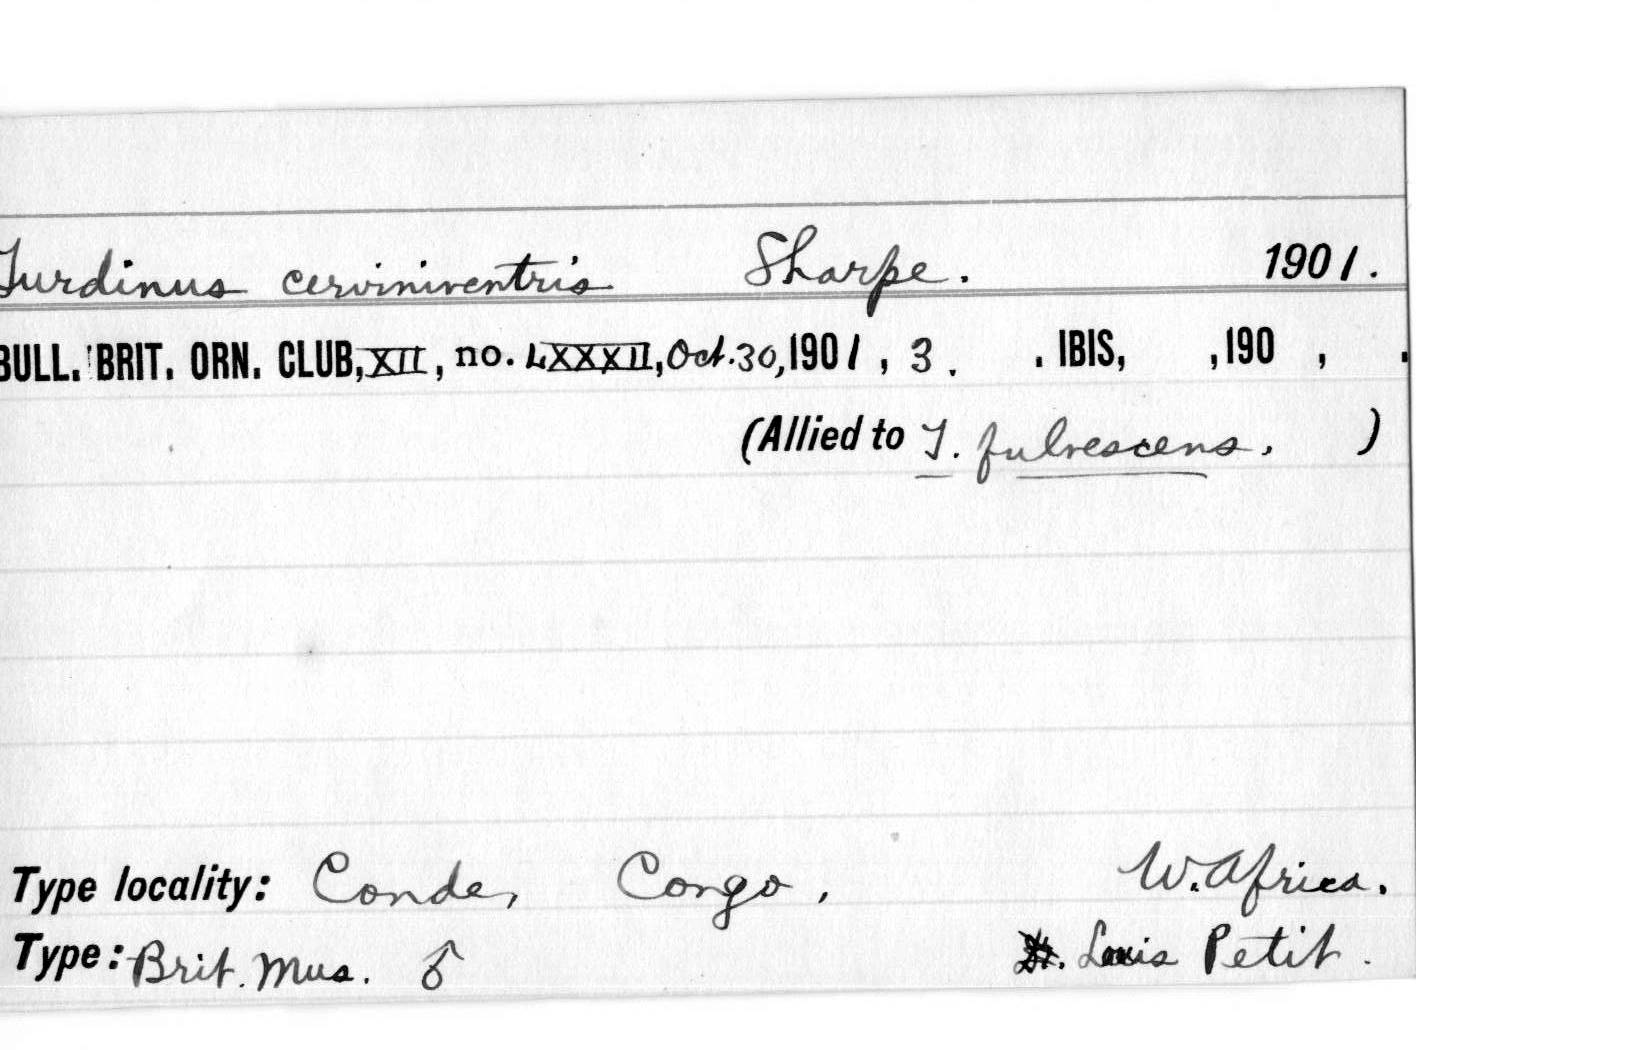 Turdinus cerviniventris Sharpe. 1901.
BULL. BRIT. ORN. CLUB, XII, no. LXXXII, Oct. 30, 1901, 3. . IBIS, ,190 , .
(Allied to T. fulvescens. )
Type locality: Conde, Congo, W. Africa.
Type: Brit. Mus. ♂ Louis Petit.